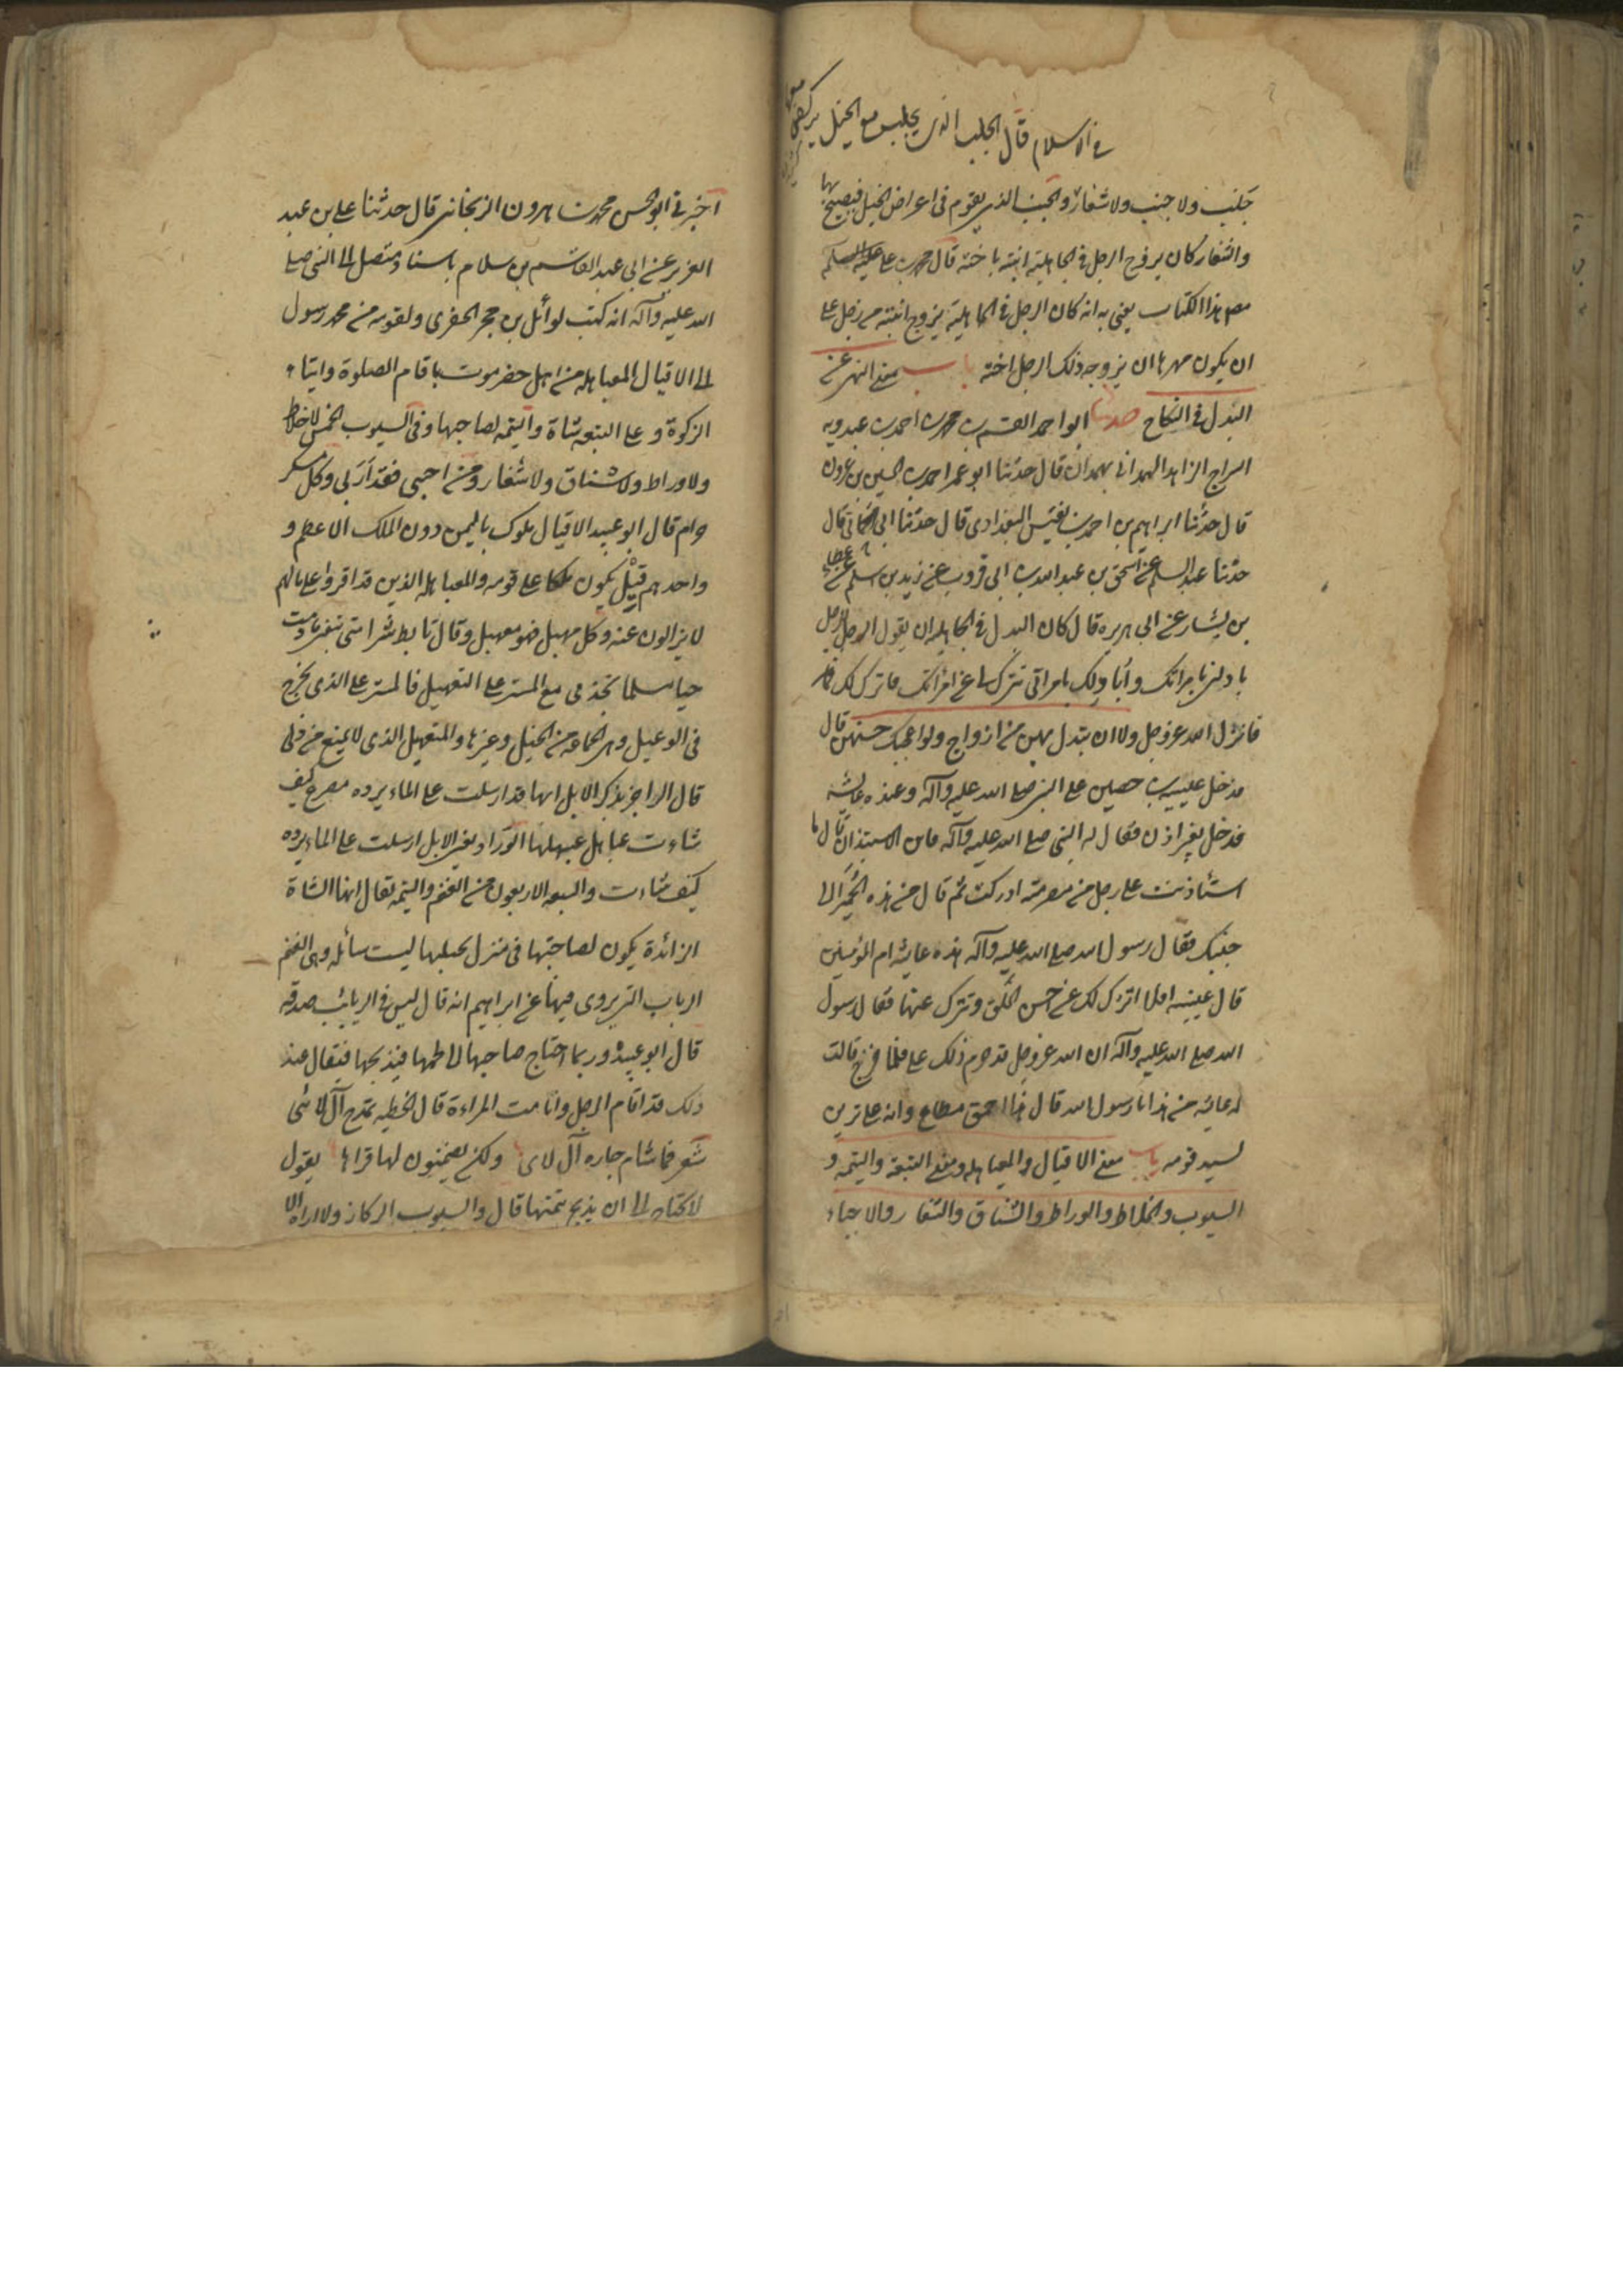 في الاسلام قال الجلب الذي يجلب مع الخيل يركض معها
جلب ولا جنب ولا شغار والجنب الذي يقوم في اعراض الخيل فيصيح بها
والشغار كان يزوج الرجل في الجاهلية ابنته باخته قال محمد بن علي
مصنف هذا الكتاب يعني به انه كان الرجل في الجاهلية يزوج ابنته من رجل على
ان يكون مهرها ان يزوجه ذلك الرجل اخته باب معنى النهي عن
البدل في النكاح حدثنا ابو احمد القسم بن محمد بن احمد بن عبدويه
السراج الزاهد الهمداني بهمدان قال حدثنا ابو عمر احمد بن الحسين بن غزوان
قال حدثنا ابراهيم بن احمد بن بغيس البغدادي قال حدثنا ابن الحماني قال
حدثنا عبد السلم عن اسحق بن عبد الله بن ابي فروة عن زيد بن اسلم عن عطا
بن يشار عن ابي هريره قال كان البدل في الجاهليه ان يقول الرجل للرجل
بادلني بامراتك وأبادلك بامراتي تترك لي عن امراتك فاترك لك
فانزل الله عزوجل ولا ان تبدل بهن من ازواج ولو اعجبك حسنهن قال
فدخل عيينه بن حصين على النبي صلى الله عليه وآله وعنده عايشه
فدخل بغير اذن فقال له النبي صلى الله عليه وآله فاين الاستيذان قال ما
استأذنت على رجل من مضر منذ ادركت ثم قال من هذه الحميرا الى
جنبك فقال رسول الله صلى الله عليه وآله هذه عايشه ام المؤمنين
قال عيينه افلا اترك لك عن حسن الخلق وتترك عنها فقال رسول
الله صلى الله عليه وآله ان الله عزوجل قد حرم ذلك علي فلما خرج قالت
له عايشه من هذا يا رسول الله قال هذا احمق مطاع وانه على ترين
لسيد قومه باب معنى الاقيال والعباهله ومعنى التيعة والتيمة و
السيوب والخلاط والوراط والشناق والشغار والاجباء
اخبرني ابو الحسن محمد بن هرون الزنجاني قال حدثنا علي بن عبد
العزيز عن ابي عبيد القاسم بن سلام باسناد متصل الى النبي صلى
الله عليه وآله انه كتب لوائل بن حجر الحضري ولقومه من محمد رسول
الى الاقيال العباهله من اهل حضرموت باقام الصلوة وايتاء
الزكوة وعلى التيعه شاة والتيمه لصاحبها وفي السيوب الخمس لا خلاط
ولا وراط ولا شناق ولا شغار ومن اجبى فقد اربى وكل مسكر
حرام قال ابو عبيد الاقيال ملوك باليمن دون الملك الاعظم و
واحدهم قيل يكون ملكا على قومه والعباهله الذين قد اقروا على مالهم
لا يزالون عنه وكل مهبل فهو معهبل وقال تابط شرا متى تبغني ما دمت
حيا مسلما تجدني مع المسترعل المتعبهل فالمسترعل الذي يخرج
في الوعيل وهي الجماعة من الخيل وغيرها والمتعبهل الذي لا يمنع من
قال الراجز يذكر الابل انها قد ارسلت على الماء يرده مصرع كيف
شاءت عباهل عبهلها الوراد يعني الابل ارسلت على الماء يرده
كيف شاءت والتيعه الاربعون من الغنم والتيمه يقال انها الشاة
الزائدة يكون لصاحبها في منزل يحلبها ليست سائمه وهي الغنم
الربايب التي يروى فيها عن ابراهيم انه قال ليس في الربائب صدقه
قال ابو عبيد وربما احتاج صاحبها الى لحمها فيذبحها فيقال عند
ذلك قد اتام الرجل واتامت المراءة قال الحطيه يمدح آل لائى
شعر فما تتام جاره آل لاى ولكن يضمنون لها قراها يقول
لا تحتاج الى ان يذبح تيمتها قال والسيوب الركاز ولا اراه الا